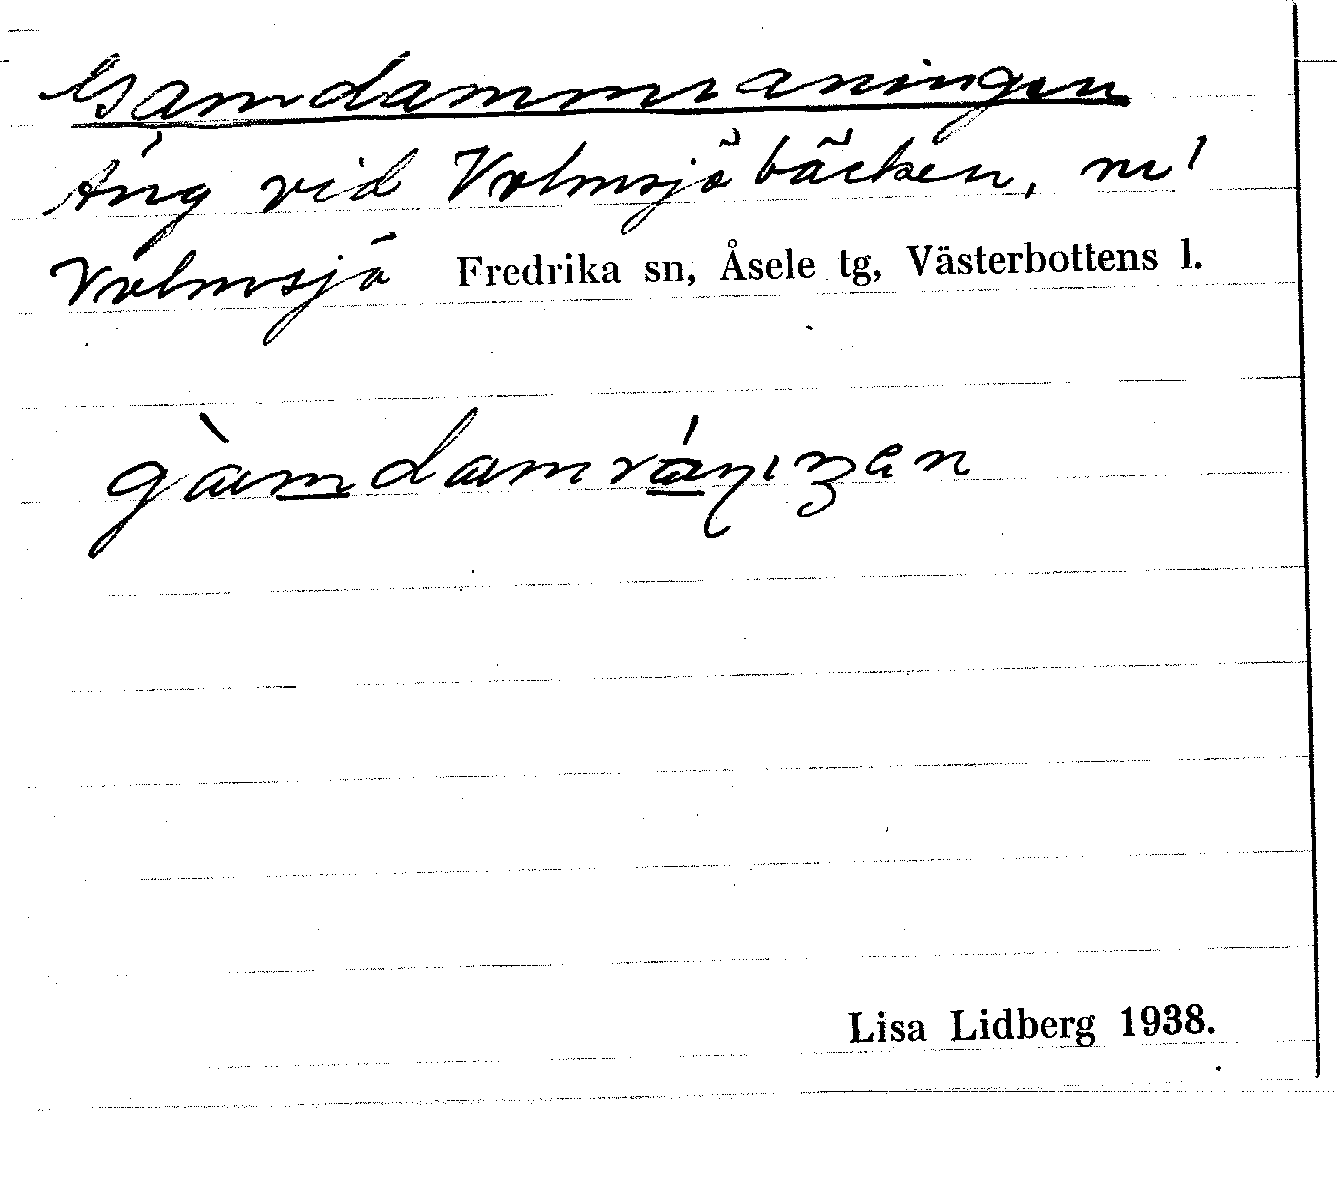 Gamdammraningen
Äng vid Volmsjöbäcken, m'
Volmsjö Fredrika sn, Åsele tg, Västerbottens l.
Lisa Lidberg 1938.